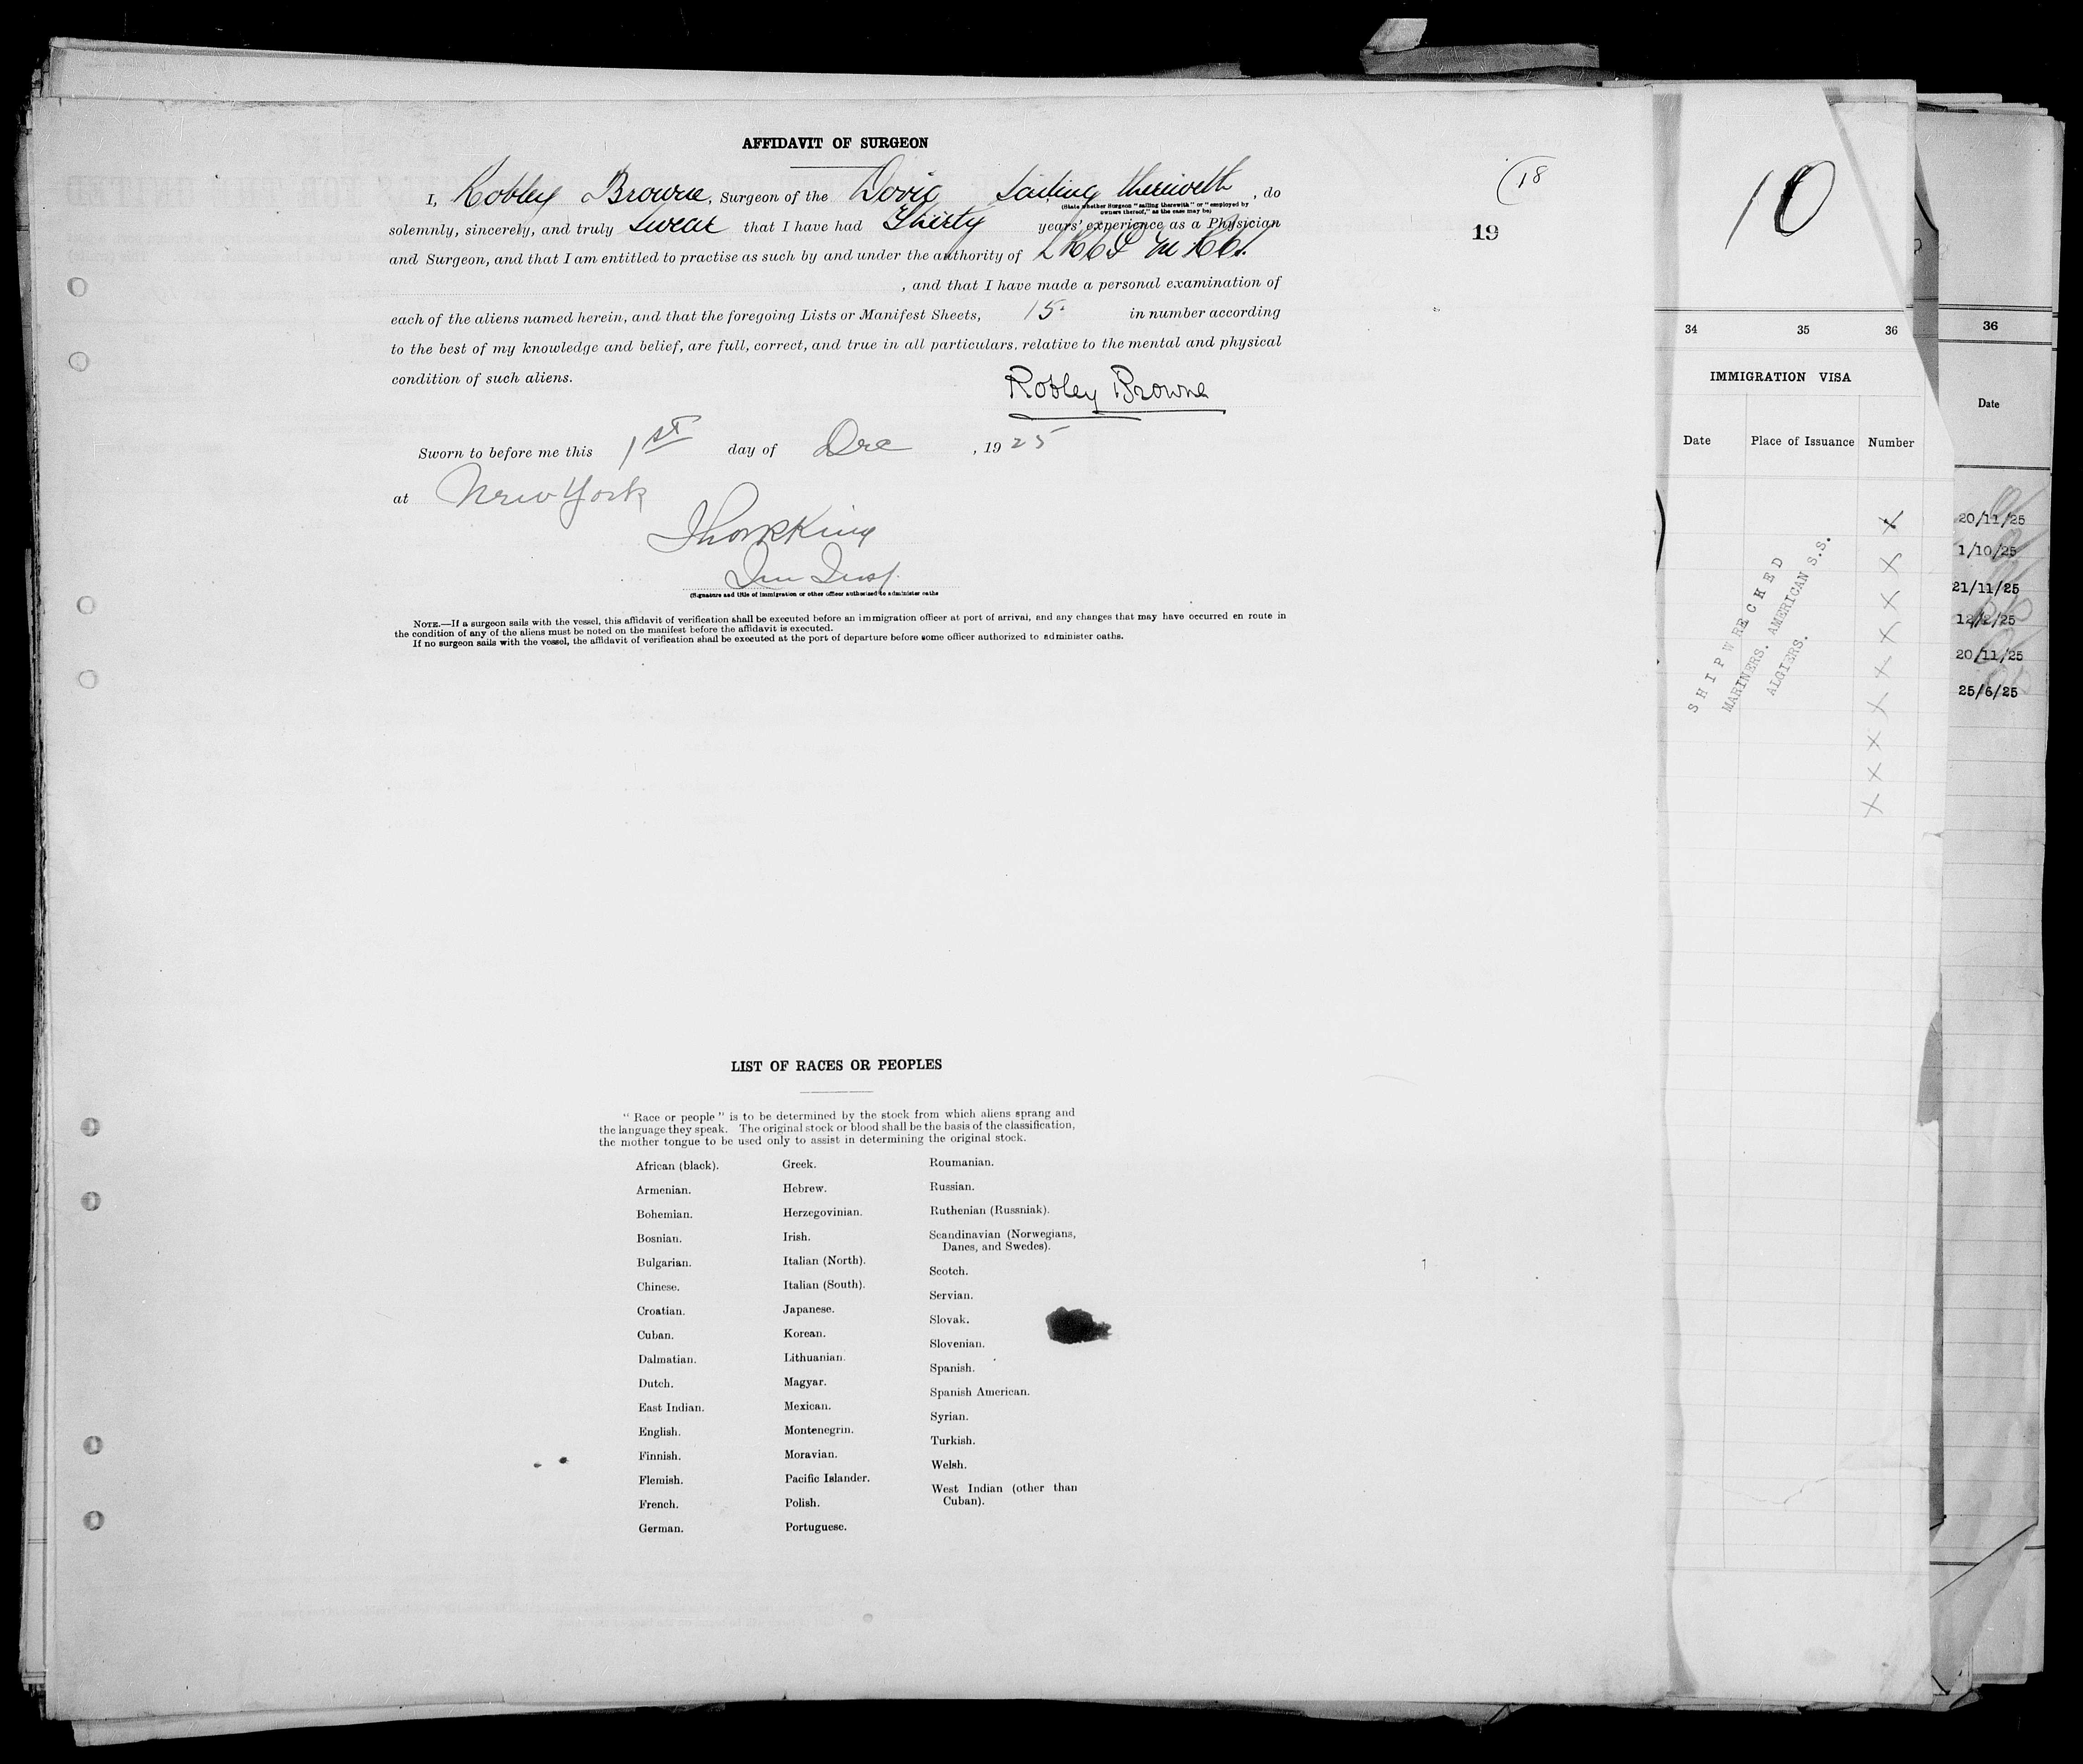 AFFIDAVIT OF SURGEON
I, Robley Browne, Surgeon of the Doric Sailing therewith, do
(State whether Surgeon "sailing therewith" or "employed by
owners thereof," as the case may be)
solemnly, sincerely, and truly Swear that I have had Thirty years' experience as a Physician
and Surgeon, and that I am entitled to practise as such by and under the authority of
, and that I have made a personal examination of
each of the aliens named herein, and that the foregoing Lists or Manifest Sheets, 15 in number according
to the best of my knowledge and belief, are full, correct, and true in all particulars. relative to the mental and physical
condition of such aliens.
Robley Browne
Sworn to before me this 1st day of Dec, 1925
at New York
King
Imm Insp.
(Signature and title of immigration or other officer authorized to administer oaths
NOTE.—If a surgeon sails with the vessel, this affidavit of verification shall be executed before an immigration officer at port of arrival, and any changes that may have occurred en route in
the condition of any of the aliens must be noted on the manifest before the affidavit is executed.
If no surgeon sails with the vessel, the affidavit of verification shall be executed at the port of departure before some officer authorized to administer oaths.
18
19
LIST OF RACES OR PEOPLES
"Race or people" is to be determined by the stock from which aliens sprang and
the language they speak. The original stock or blood shall be the basis of the classification,
the mother tongue to be used only to assist in determining the original stock.
African (black).
Armenian.
Bohemian.
Bosnian.
Bulgarian.
Chinese.
Croatian.
Cuban.
Dalmatian.
Dutch.
East Indian.
English.
Finnish.
Flemish.
French.
German.
Greek.
Hebrew.
Herzegovinian.
Irish.
Italian (North).
Italian (South).
Japanese.
Korean.
Lithuanian.
Magyar.
Mexican.
Montenegrin.
Moravian.
Pacific Islander.
Polish.
Portuguese.
Roumanian.
Russian.
Ruthenian (Russniak).
Scandinavian (Norwegians,
Danes, and Swedes).
Scotch.
Servian.
Slovak.
Slovenian.
Spanish.
Spanish American.
Syrian.
Turkish.
Welsh.
West Indian (other than
Cuban).
10
34 35 36
IMMIGRATION VISA
Date Place of Issuance Number
SHIPWRECHED
MARINERS. AMERICAN S.S.
ALGIERS.
X
X
X
X
X
X
X
X
X
36
Date
20/11/25
1/10/25
21/11/25
12/2/25
20/11/25
25/6/25